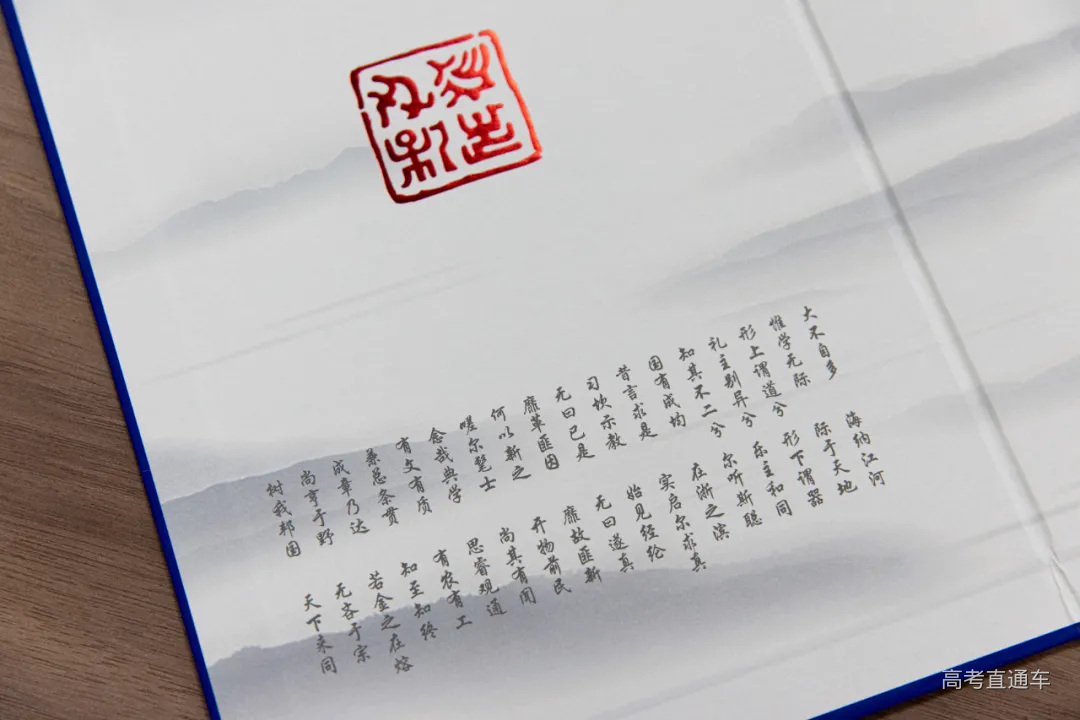 大不自多 海纳江河
惟学无际 际于天地
形上谓道兮 形下谓器
礼主别异兮 乐主和同
知其不二兮 尔听斯聪
国有成均 在浙之滨
昔言求是 实启尔求真
习坎示教 始见经纶
无曰已是 无曰遂真
靡革匪因 靡故匪新
何以新之 开物前民
嗟尔髦士 尚其有闻
念哉典学 思睿观通
有文有质 有农有工
兼总条贯 知至知终
成章乃达 若金之在熔
尚亨于野 无吝于宗
树我邦国 天下来同
高考直通车